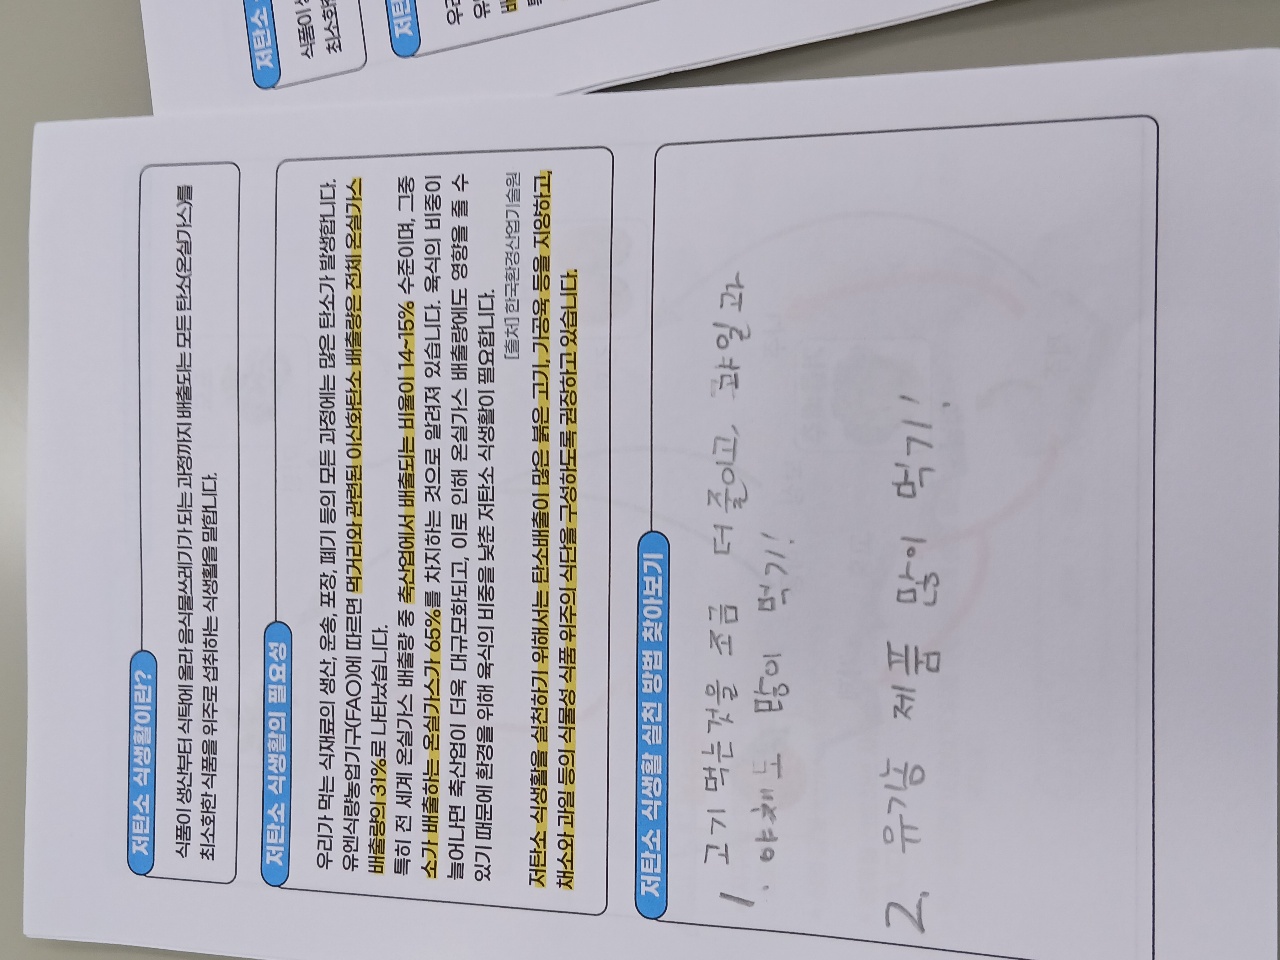 저탄소
식품이
최소화
저탄
우리
유엔
저탄소 식생활이란?
식품이 생산부터 식탁에 올라 음식물쓰레기가 되는 과정까지 배출되는 모든 탄소(온실가스)를
최소화한 식품을 위주로 섭취하는 식생활을 말합니다.
저탄소 식생활의 필요성
우리가 먹는 식재료의 생산, 운송, 포장, 폐기 등의 모든 과정에는 많은 탄소가 발생합니다.
유엔식량농업기구(FAO)에 따르면 먹거리와 관련된 이산화탄소 배출량은 전체 온실가스
배출량의 31%로 나타났습니다.
특히 전 세계 온실가스 배출량 중 축산업에서 배출되는 비율이 14~15% 수준이며, 그중
소가 배출하는 온실가스가 65%를 차지하는 것으로 알려져 있습니다. 육식의 비중이
늘어나면 축산업이 더욱 대규모화되고, 이로 인해 온실가스 배출량에도 영향을 줄 수
있기 때문에 환경을 위해 육식의 비중을 낮춘 저탄소 식생활이 필요합니다.
[출처] 한국환경산업기술원
저탄소 식생활을 실천하기 위해서는 탄소배출이 많은 붉은 고기, 가공육 등을 지양하고,
채소와 과일 등의 식물성 식품 위주의 식단을 구성하도록 권장하고 있습니다.
저탄소 식생활 실천 방법 찾아보기
1. 고기 먹는것을 조금 더 줄이고, 과일과
야채도 많이 먹기!
2. 유기농 제품 많이 먹기!